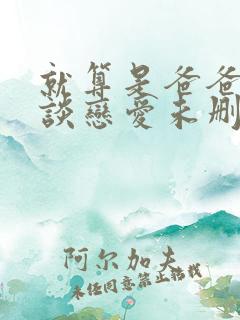 就算是爸爸
談戀愛未刪
阿尔加夫
未经同意禁止转载